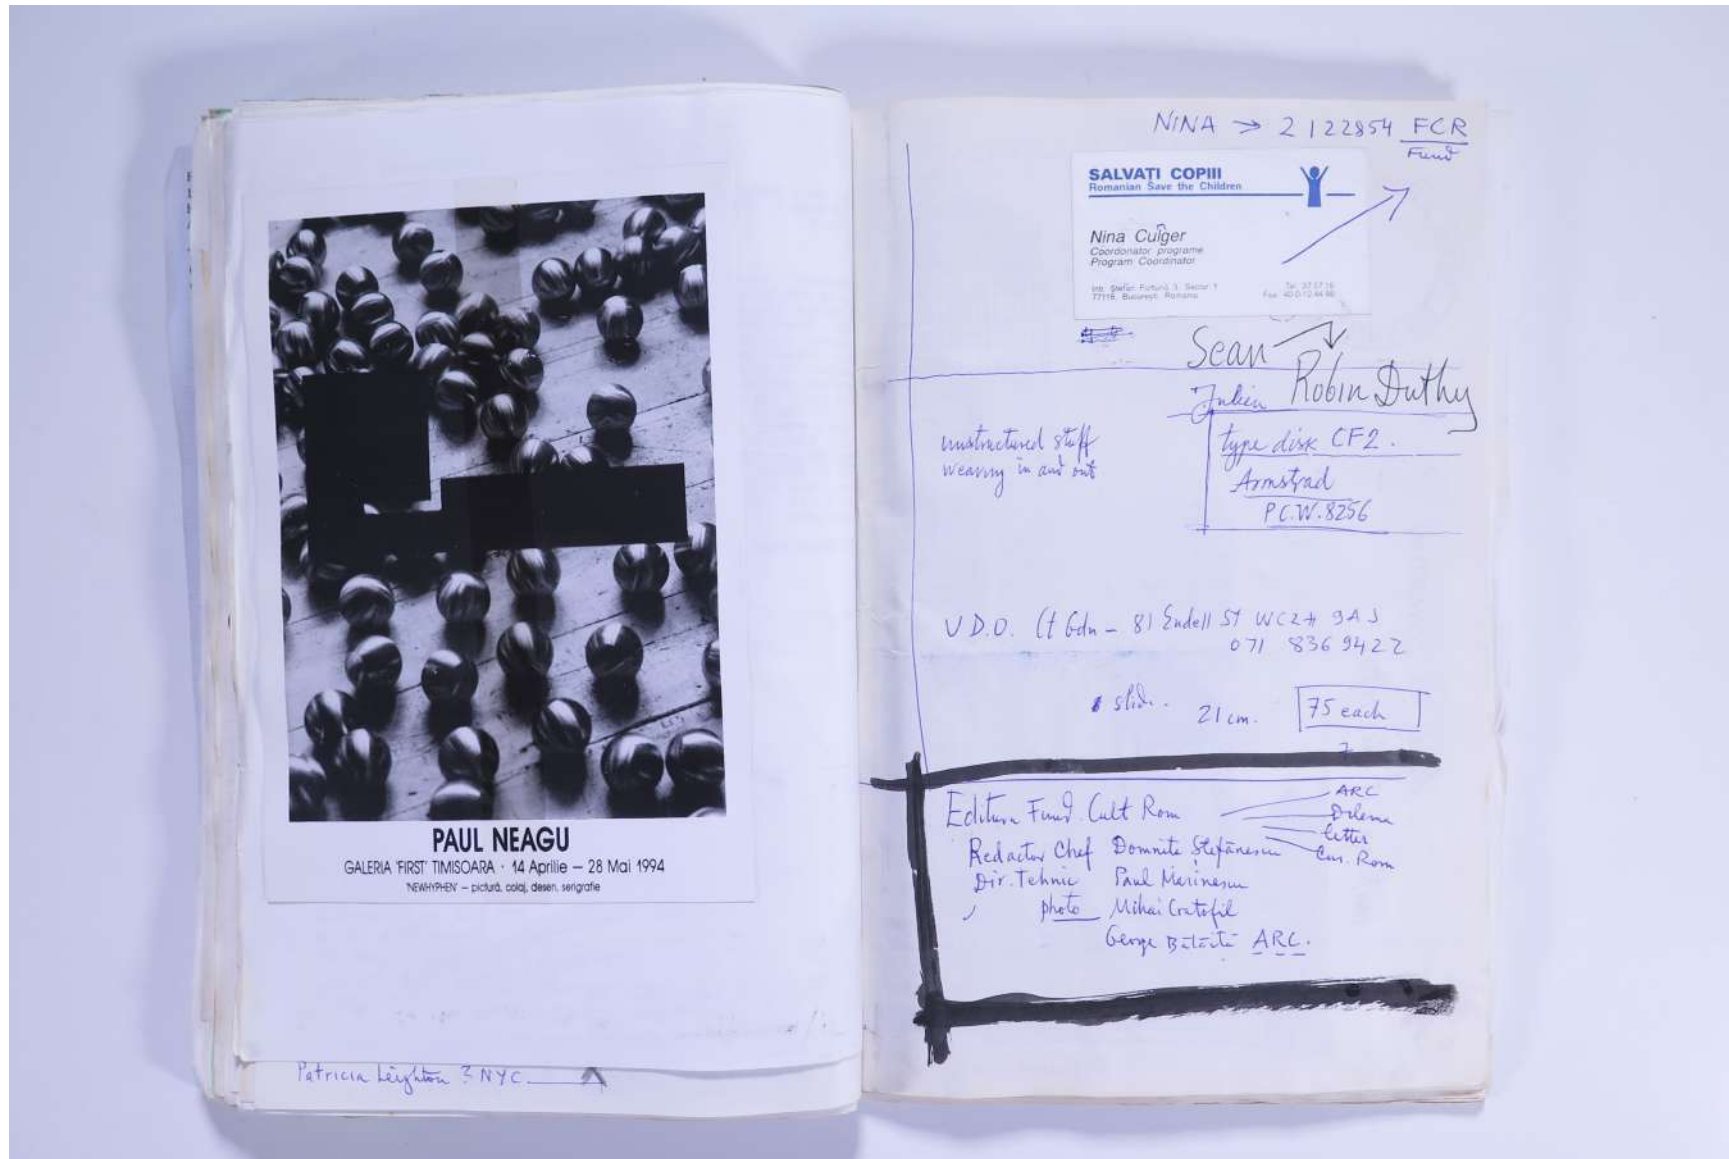 PAUL NEAGU
GALERIA 'FIRST' TIMISOARA · 14 Aprilie — 28 Mai 1994
'NEWHYPHEN' — pictură, colaj, desen, serigrafie
Patricia Leighton ? NYC
NINA → 2122854 FCR
Fund
SALVATI COPIII
Romanian Save the Children
Nina Cuĩger
Coordonator programe
Program Coordinator
Intr. Ștefan Furtună 3, Sector 1
77116, București, Romania
Tel.
Fax
Scan
Robin Duthy
Julien
unstructured stuff
weaving in and out
type disk CF2.
Armstrad
P.C.W. 8256
U.D.O. Ct Gdn – 81 Endell St WC2H 9AJ
071 836 9422
slide.
21 cm.
75 each
Editura Fund. Cult Rom
ARC
Dilema
letter
Cur. Rom
Redactor Chef Domnite Ștefănescu
Dir. Tehnic Paul Marinescu
photo Mihai
George ARC.